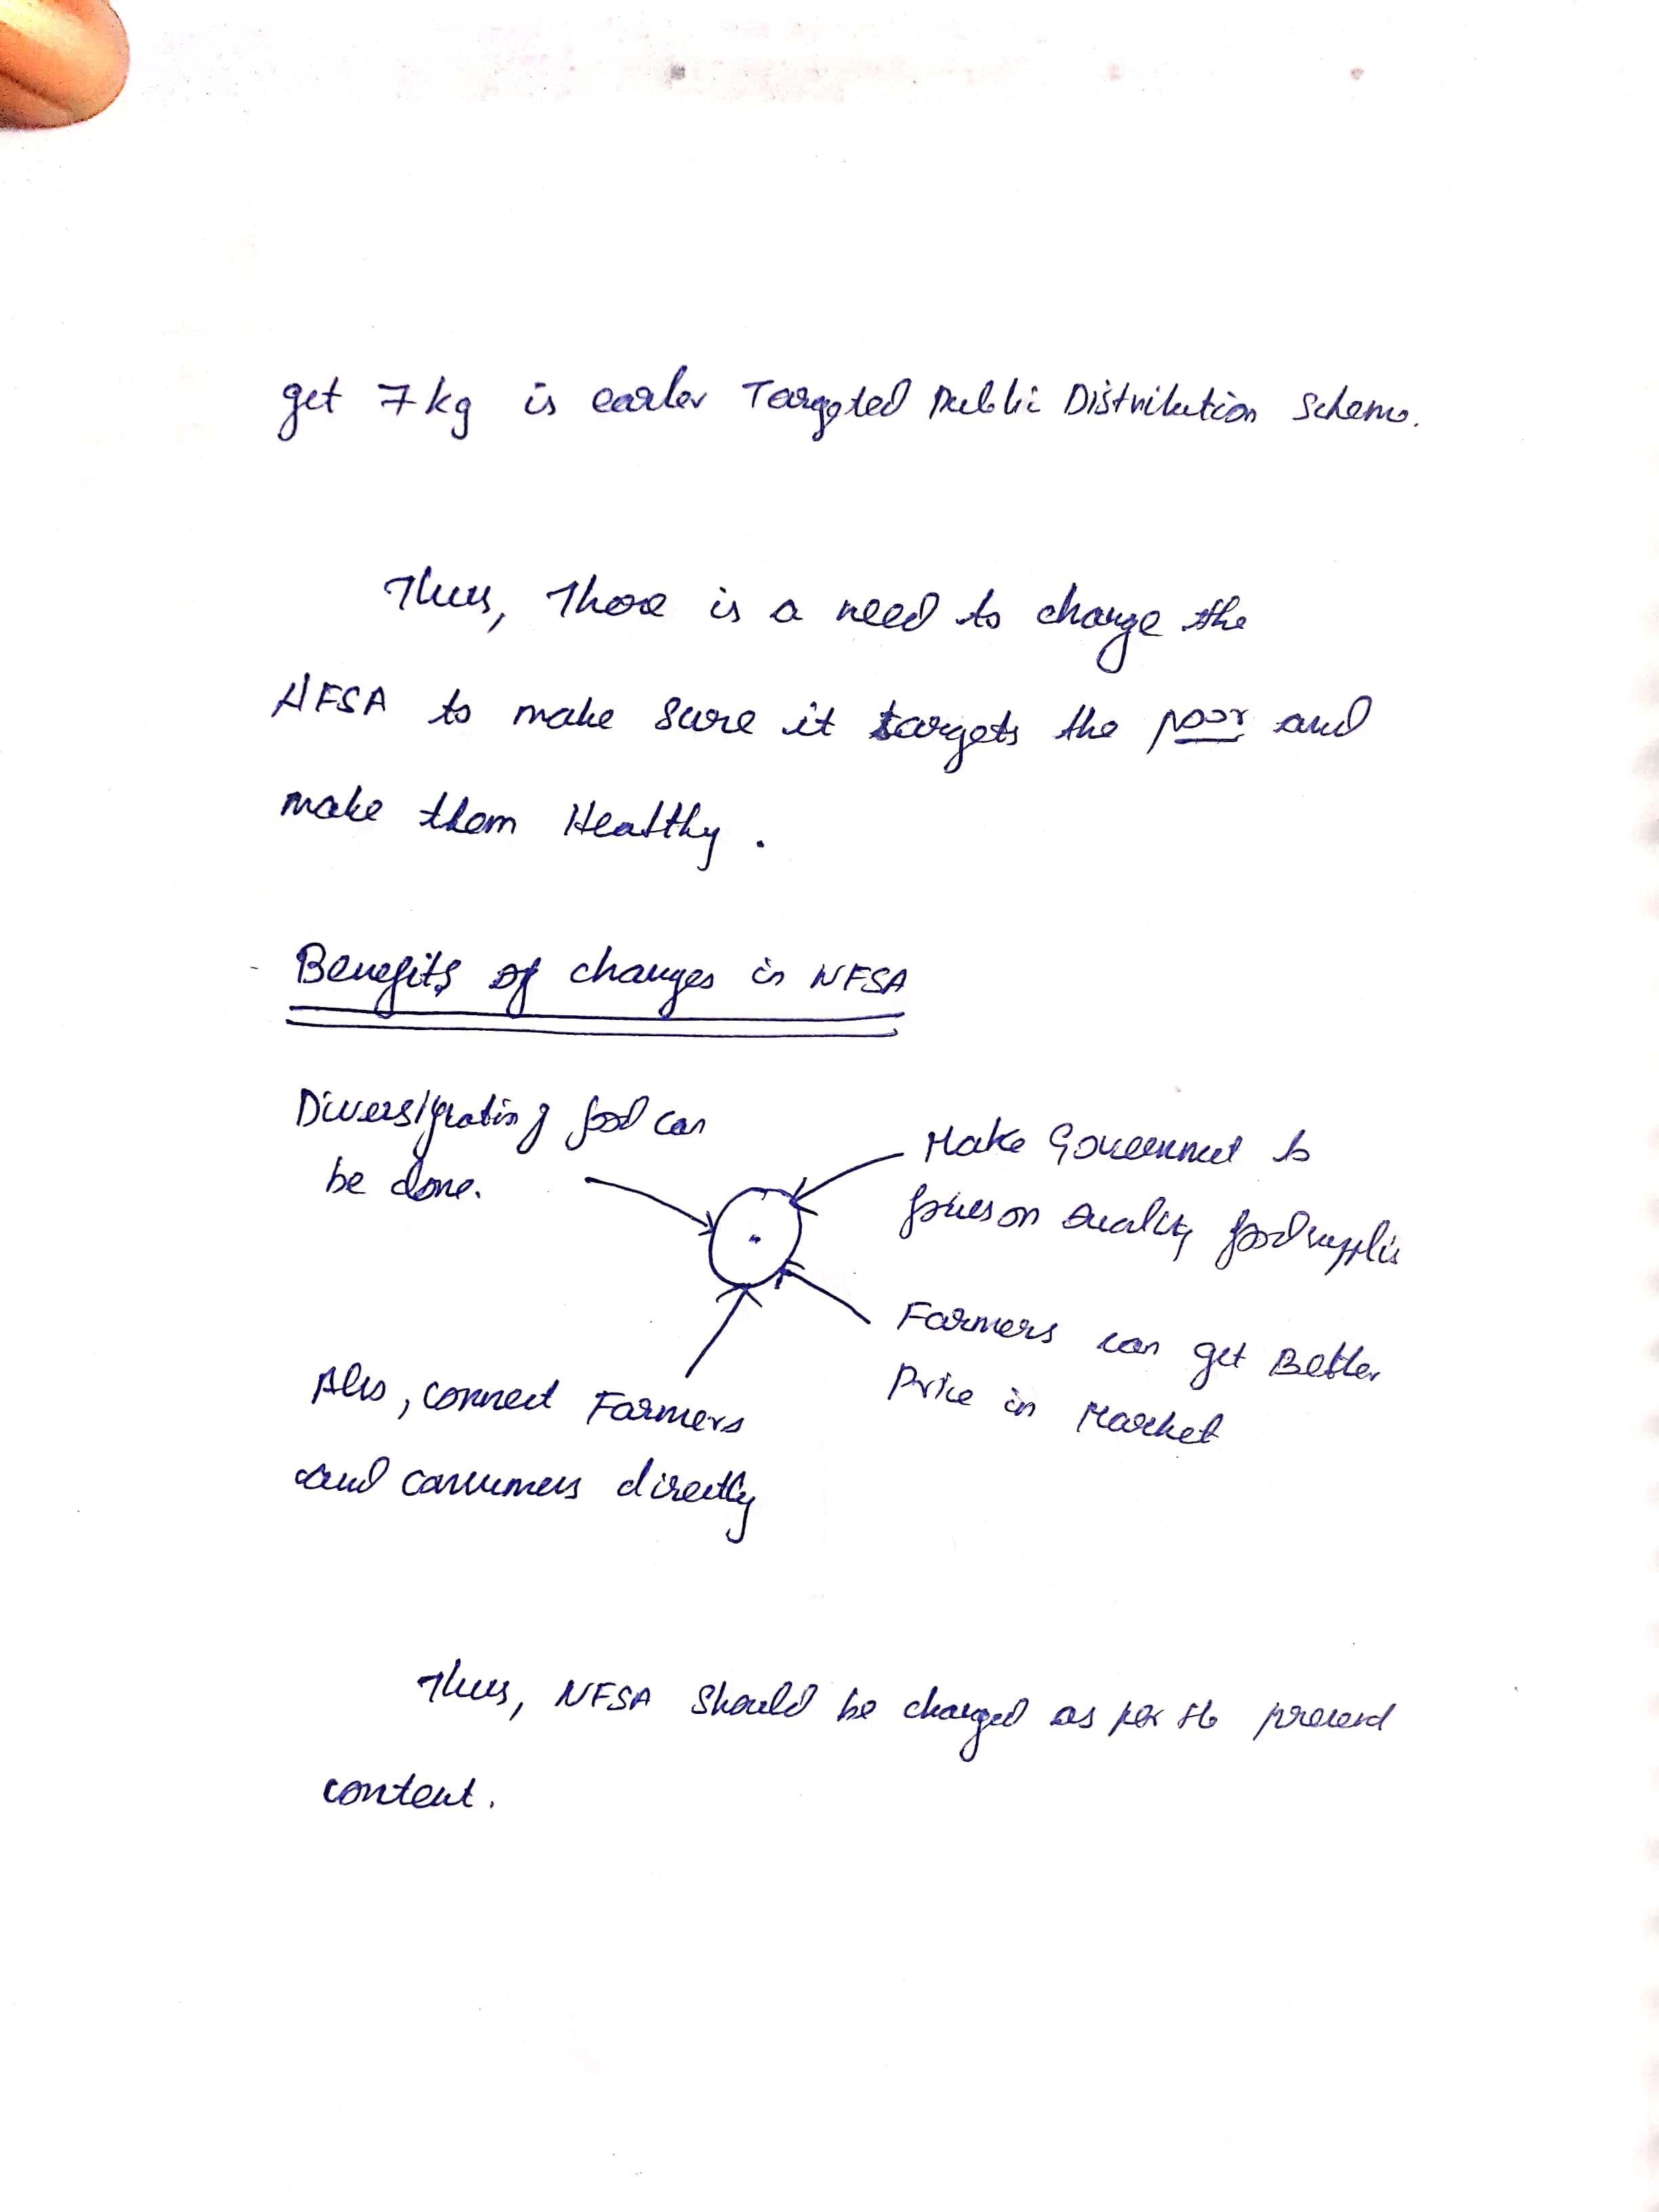 get 7kg is earler Targeted Public Distribution Scheme.
Thus, There is a need to change the
NFSA to make sure it targets the poor and
make them Healthy.
Benefits of changes in NFSA
Diversification of food can
be done.
Make Government to
focus on Quality food supplies
Farmers can get Better
Price in Market
Also, connect Farmers
and consumers directly
Thus, NFSA Should be changed as per the present
content.